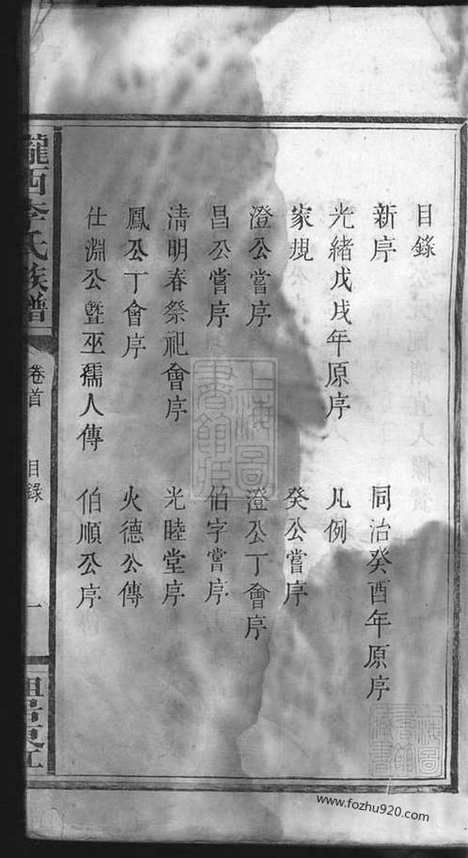 目錄
新序 同治癸酉年原序
光緒戊戌年原序 凡例
家規 癸公嘗序
澄公嘗序 澄公丁會序
昌公嘗序 伯字嘗序
清明春祭祀會序 光睦堂序
鳳公丁會序 火德公傳
仕淵公暨巫孺人傳 伯順公序
隴西李氏族譜
卷首
目錄
一
上海圖書館藏
www.fozhu920.com